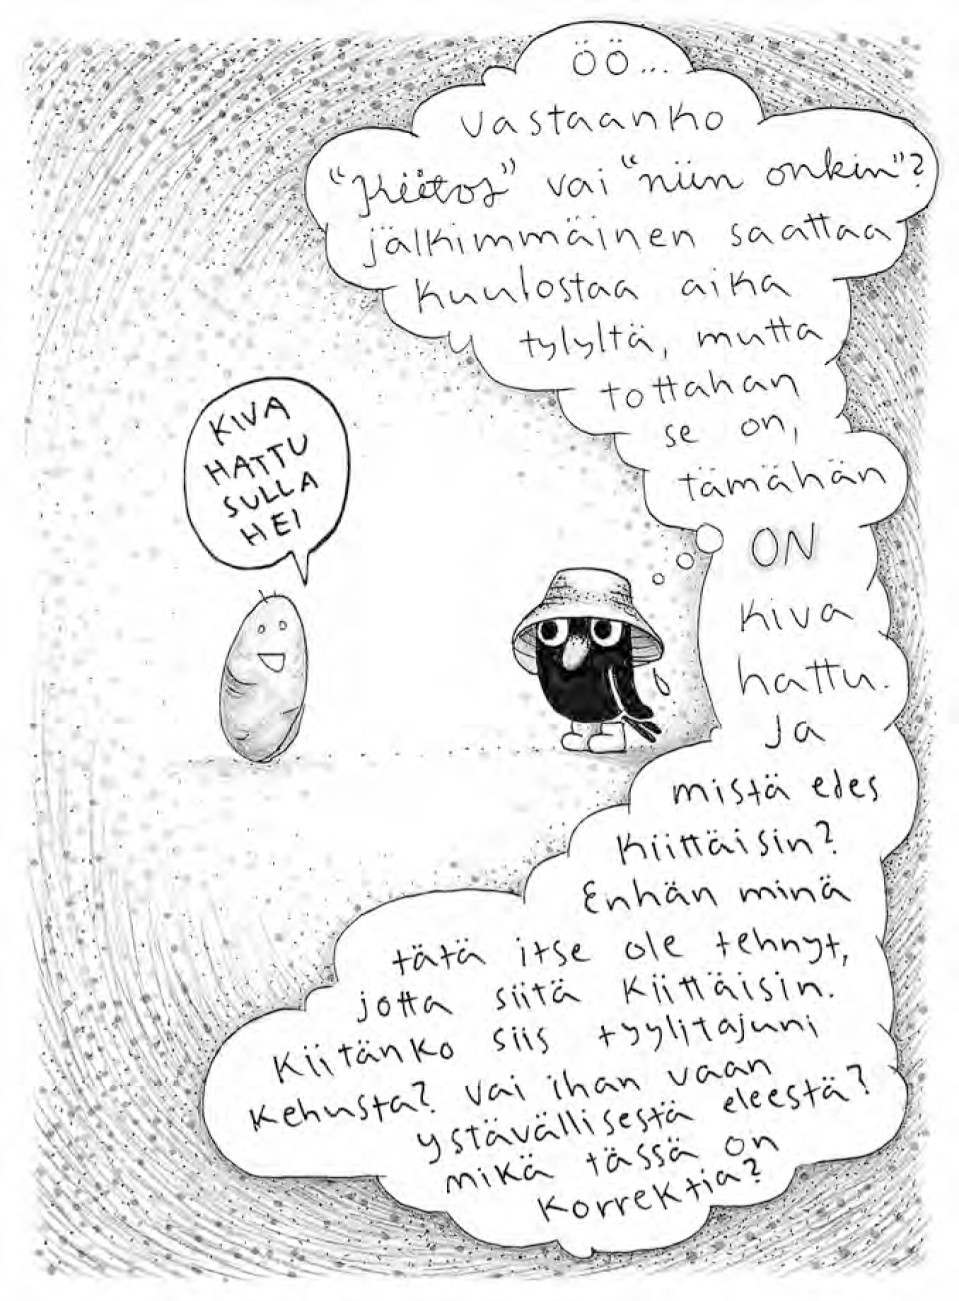 KIVA
HATTU
SULLA
HEI
ÖÖ...
vastaanko
"Kiitos" vai "niin onkin"?
jälkimmäinen saattaa
kuulostaa aika
tylyltä, mutta
tottahan
se on,
tämähän
ON
kiva
hattu.
Ja
mistä edes
kiittäisin?
Enhän minä
tätä itse ole tehnyt,
jotta siitä kiittäisin.
Kiitänkö siis tyylitajuni
kehusta? vai ihan vaan
ystävällisestä eleestä?
mikä tässä on
korrektia?